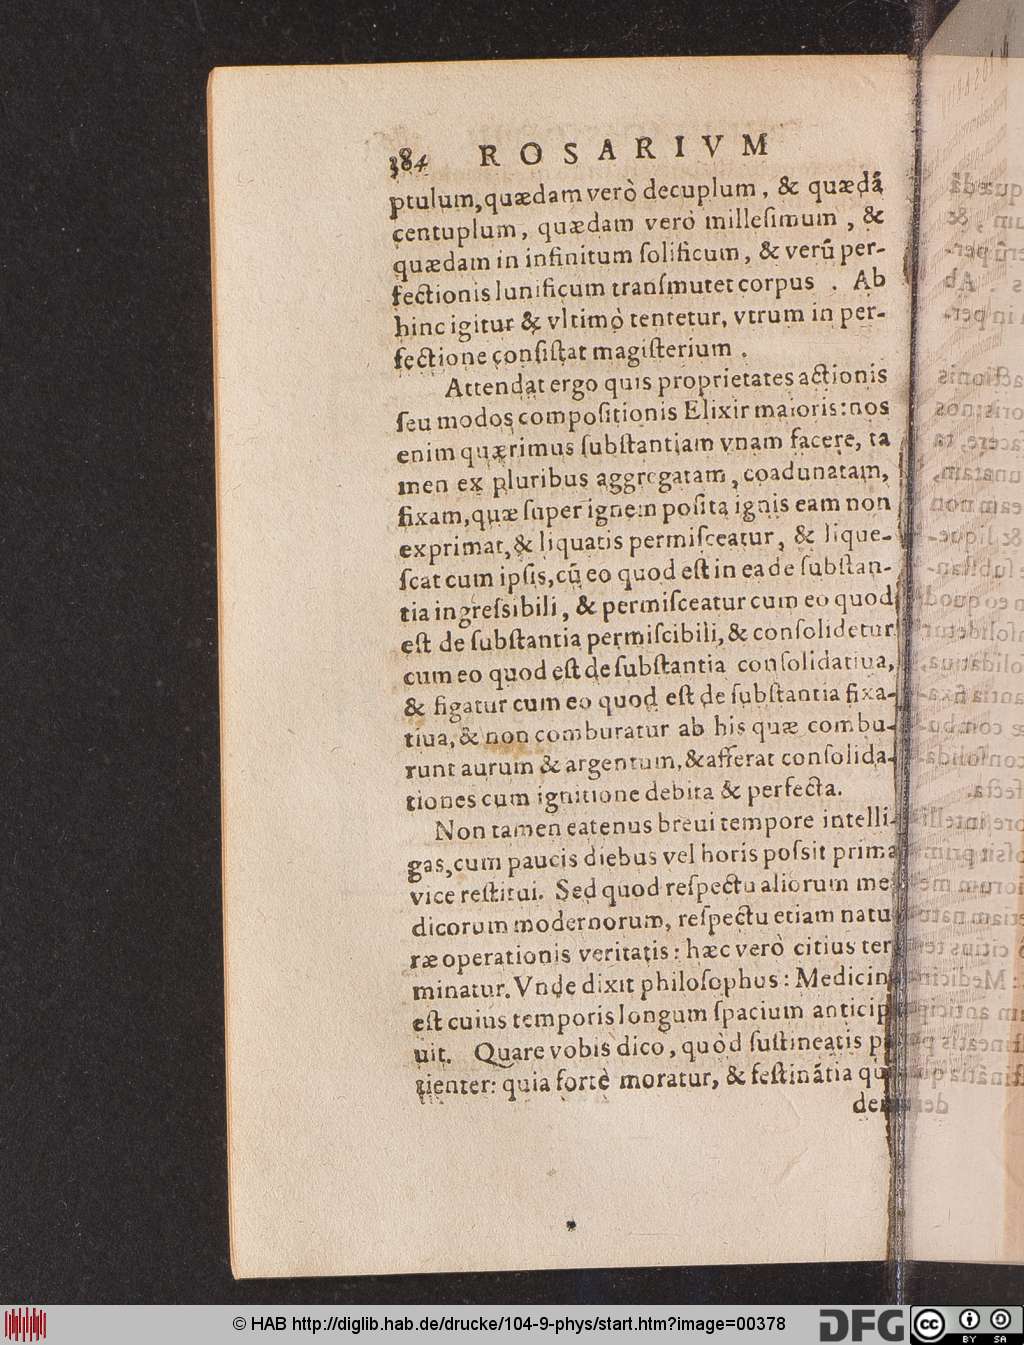 384 ROSARIVM
ptulum, quædam verò decuplum, & quædã
centuplum, quædam verò millesimum, &
quædam in infinitum ſolificum, & verũ per-
fectionis lunificum tranſmutet corpus . Ab
hinc igitur & vltimò tentetur, vtrum in per-
fectione conſiſtat magiſterium .
Attendat ergo quis proprietates actionis
ſeu modos compoſitionis Elixir maioris: nos
enim quærimus ſubſtantiam vnam facere, ta
men ex pluribus aggregatam, coadunatam,
fixam, quæ ſuper ignem poſita ignis eam non
exprimat, & liquatis permiſceatur, & lique-
ſcat cum ipſis, cũ eo quod eſt in eade ſubſtan-
tia ingreſsibili, & permiſceatur cum eo quod
eſt de ſubſtantia permiſcibili, & conſolidetur
cum eo quod eſt de ſubſtantia conſolidatiua,
& figatur cum eo quod eſt de ſubſtantia fixa-
tiua, & non comburatur ab his quæ combu-
runt aurum & argentum, & afferat conſolida-
tiones cum ignitione debita & perfecta.
Non tamen eatenus breui tempore intelli-
gas, cum paucis diebus vel horis poſsit prima
vice reſtitui. Sed quod reſpectu aliorum me
dicorum modernorum, reſpectu etiam natu
ræ operationis veritatis: hæc verò citius ter
minatur. Vnde dixit philoſophus: Medicin
eſt cuius temporis longum ſpacium anticip
uit. Quare vobis dico, quòd ſuſtineatis p
tienter: quia fortè moratur, & feſtinãtia qu
de
© HAB http://diglib.hab.de/drucke/104-9-phys/start.htm?image=00378
DFG
cc BY SA